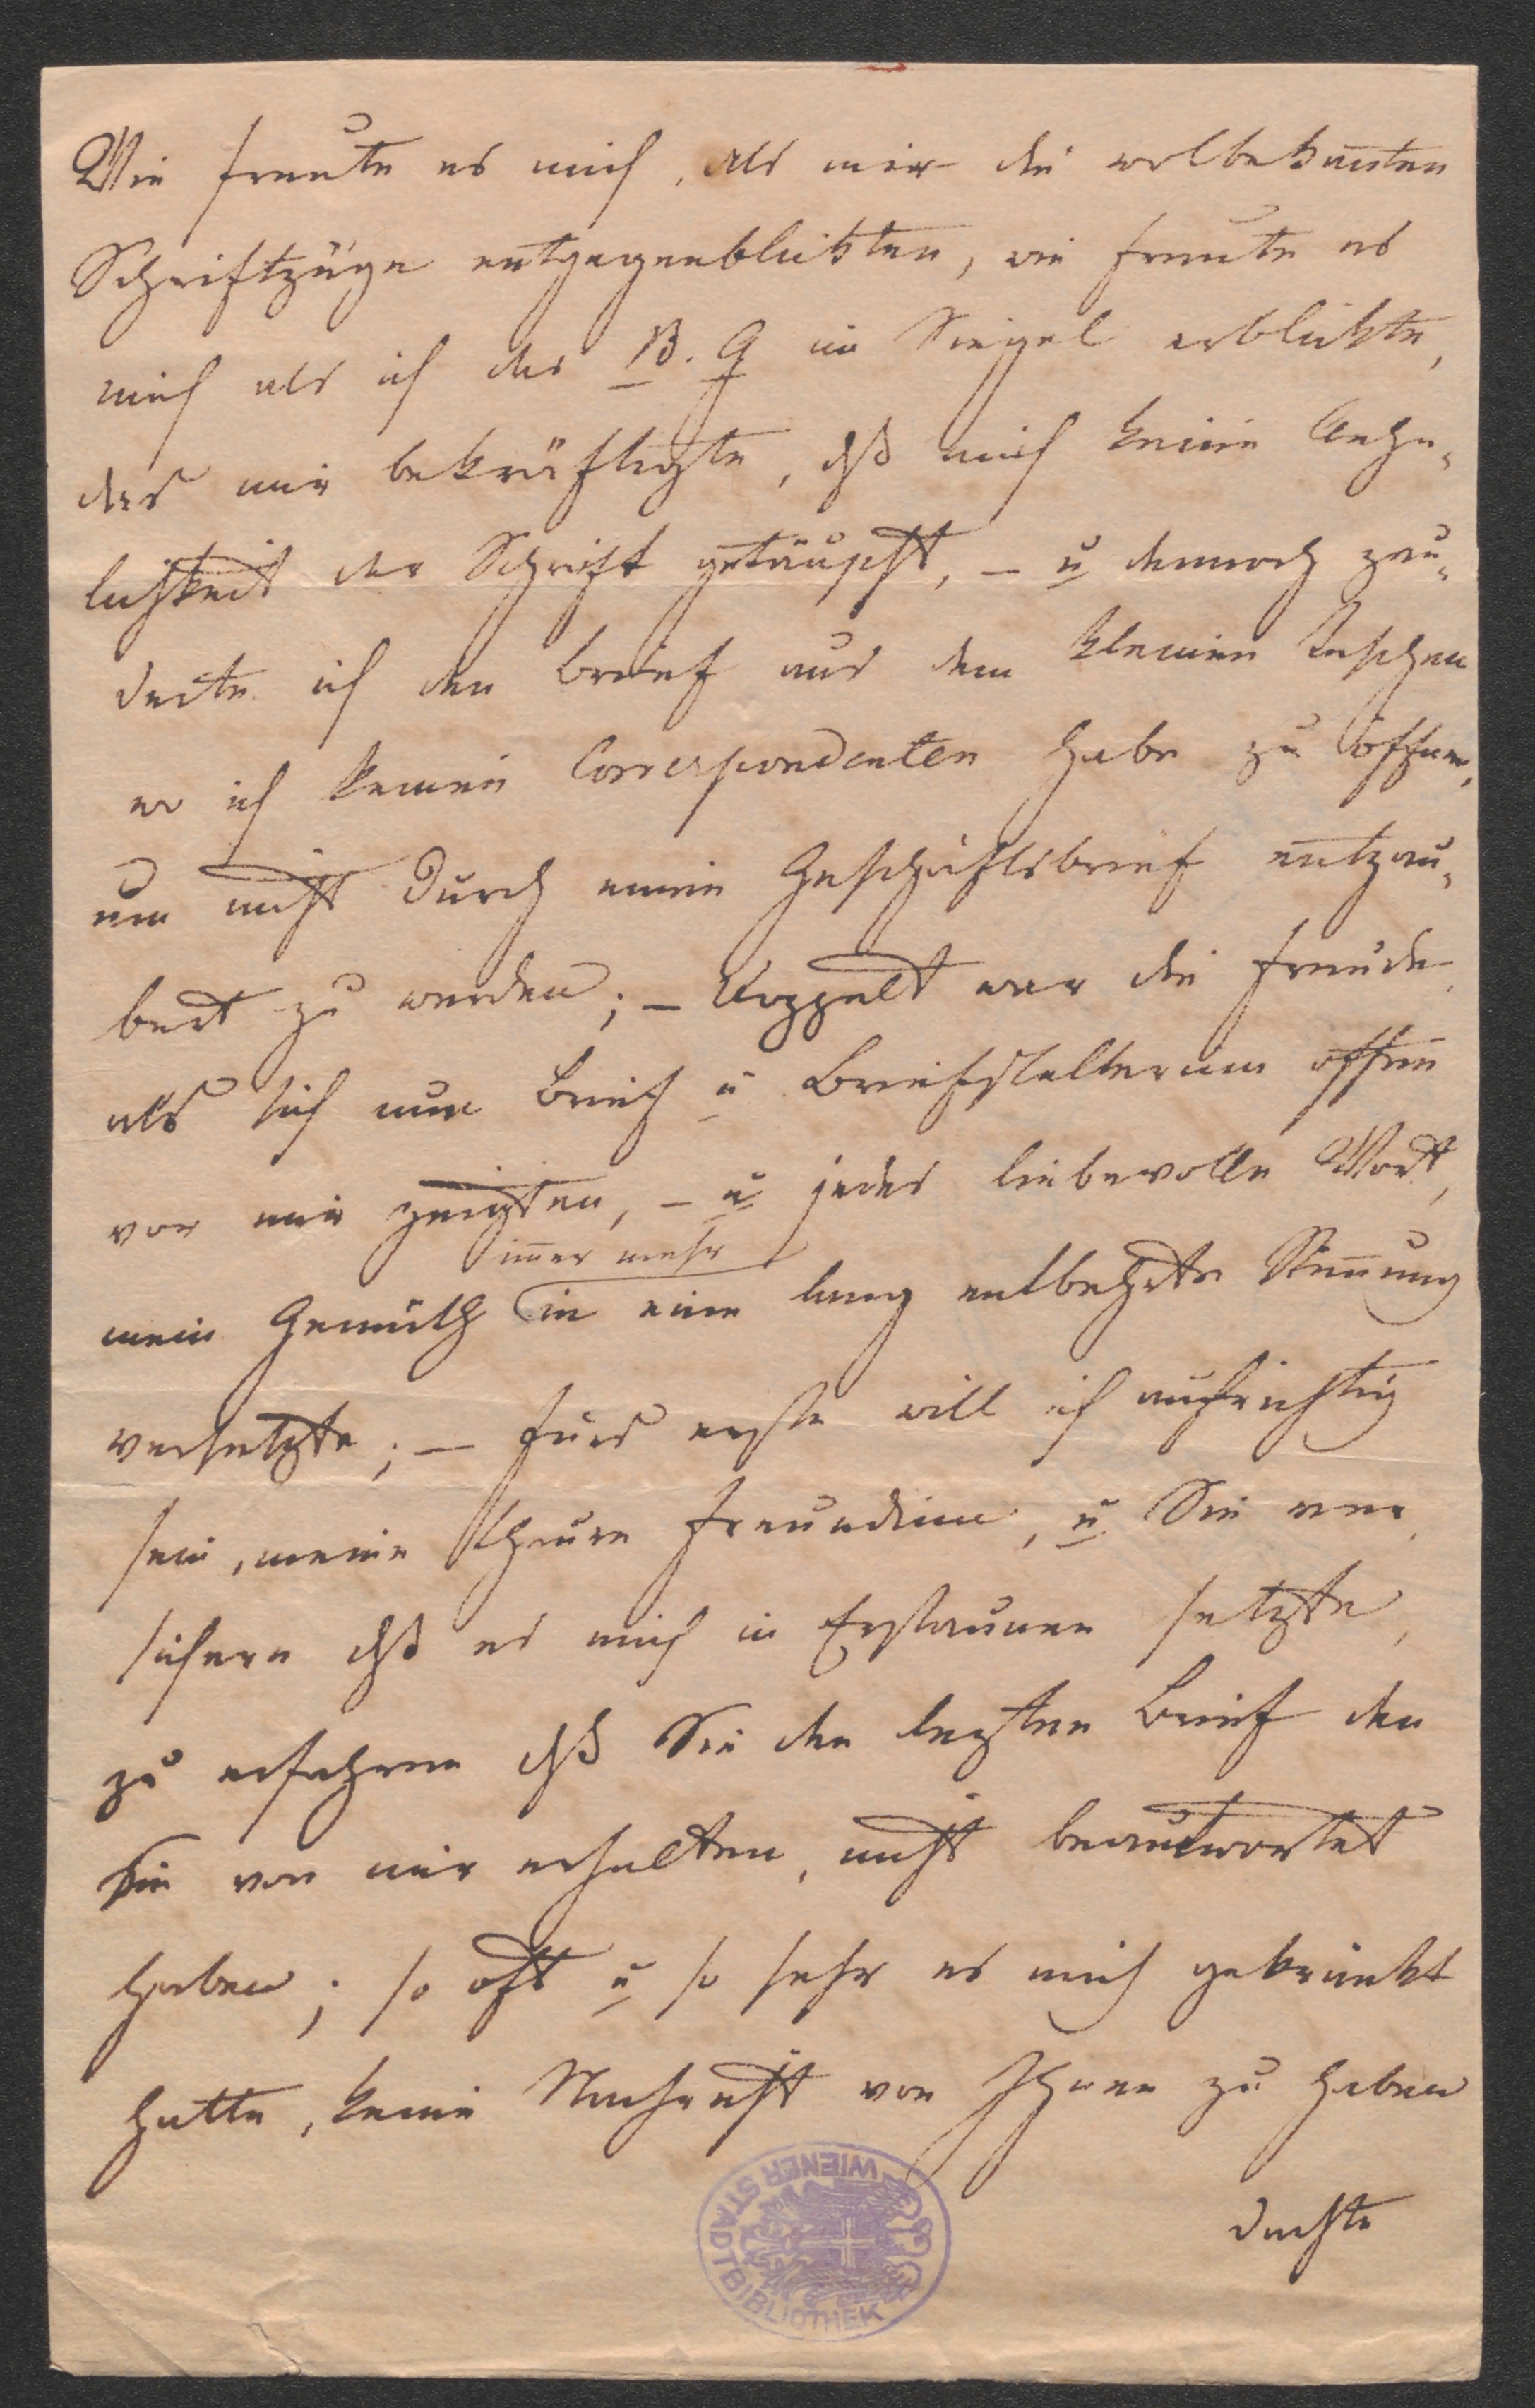 Wie freute es mich, als mir die wolbekan̄ten
Schriftzüge entgegenblickten, wie freute es
mich als ich das B. G im Siegel erblickte,
das mir bekräftigte, dß mich keine Aehn„
lichkeit der Schrift getäuscht, – u dennoch zau„
derte ich den Brief aus dem kleinen
wo ich keinen Correspondenten habe zu öffnen,
um nicht durch einen Geschäftsbrief entzau„
bert zu werden; – Doppelt war die Freude
als sich nun Brief u Briefstellerinn offen
vor mir zeigten, – u jedes liebevolle Wort,
im̄er mehr
mein Gemüth in eine lang entbehrte Stim̄ung
versetzte; – fürs erste will ich aufrichtig
sein, meine theure Freundinn, u Sie ver„
sichern dß es mich in Erstaunen setzte,
zu erfahren dß Sie den lezten Brief den
Sie von mir erhalten, nicht beantwortet
haben; so oft u so sehr es mich gekränkt
hatte, keine Nachricht von Ihnen zu haben
dachte
WIENER STADTBIBLIOTHEK